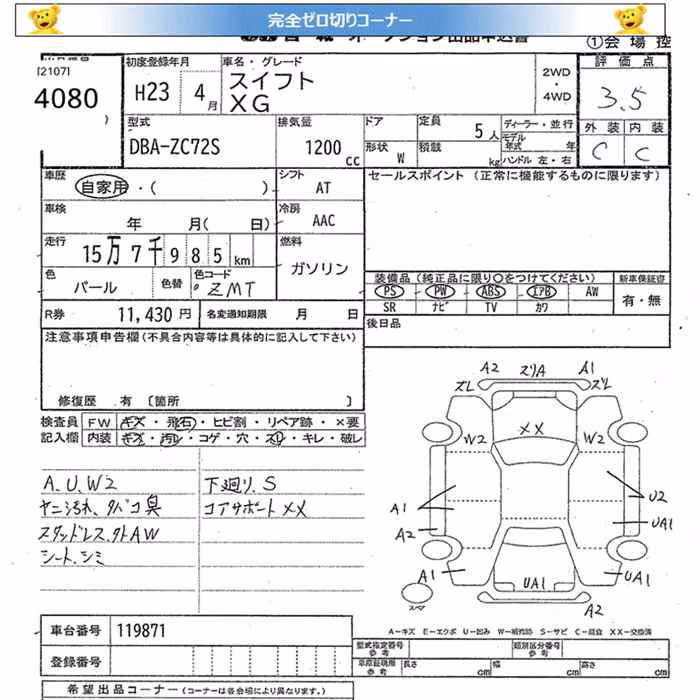 完全ゼロ切りコーナー
①会場控
[2107]
4080
)
初度登録年月
H23 4月
車名・グレード
スイフト
XG
2WD
・
4WD
評価点
3.5
外装 内装
C C
型式
DBA-ZC72S
排気量
1200 cc
ドア
形状 W
定員 5人
積載 kg
ディーラー・並行
モデル年式 年
ハンドル 左・右
車歴
自家用・( )
シフト
AT
セールスポイント(正常に機能するものに限ります)
車検
年 月( 日)
冷房
AAC
走行
15万7千985km
燃料
ガソリン
色
パール
色替
色コード
ZMT
装備品(純正品に限り○をつけてください)
新車保証書
PS PW ABS エアB AW
SR ナビ TV カワ
有・無
R券 11,430円 名変通知期限 月 日
後日品
注意事項申告欄(不具合内容等は具体的に記入して下さい)
修復歴 有〔箇所 〕
検査員
記入欄
FW キズ・飛石・ヒビ割・リペア跡・×要
内装 キズ・汚れ・コゲ・穴・スレ・キレ・破レ
A.U.W2
ヤニ汚れ、タバコ臭
スタッドレス.外AW
シート.シミ
下廻り.S
コアサポートXX
A2 ズリA A1
ズレ ズレ
XX
W2 W2
A1 U2
A2 UA1
A1 UA1 UA1
スマ
A2
A-キズ E-エクボ U-凹み W-補修跡 S-サビ C-腐食 XX-交換済
車台番号 119871
登録番号
型式指定番号
参考
類別区分番号
参考
車庫証明用
参考
長さ cm 幅 cm 高さ cm
希望出品コーナー(コーナーは各会場により異なります。)